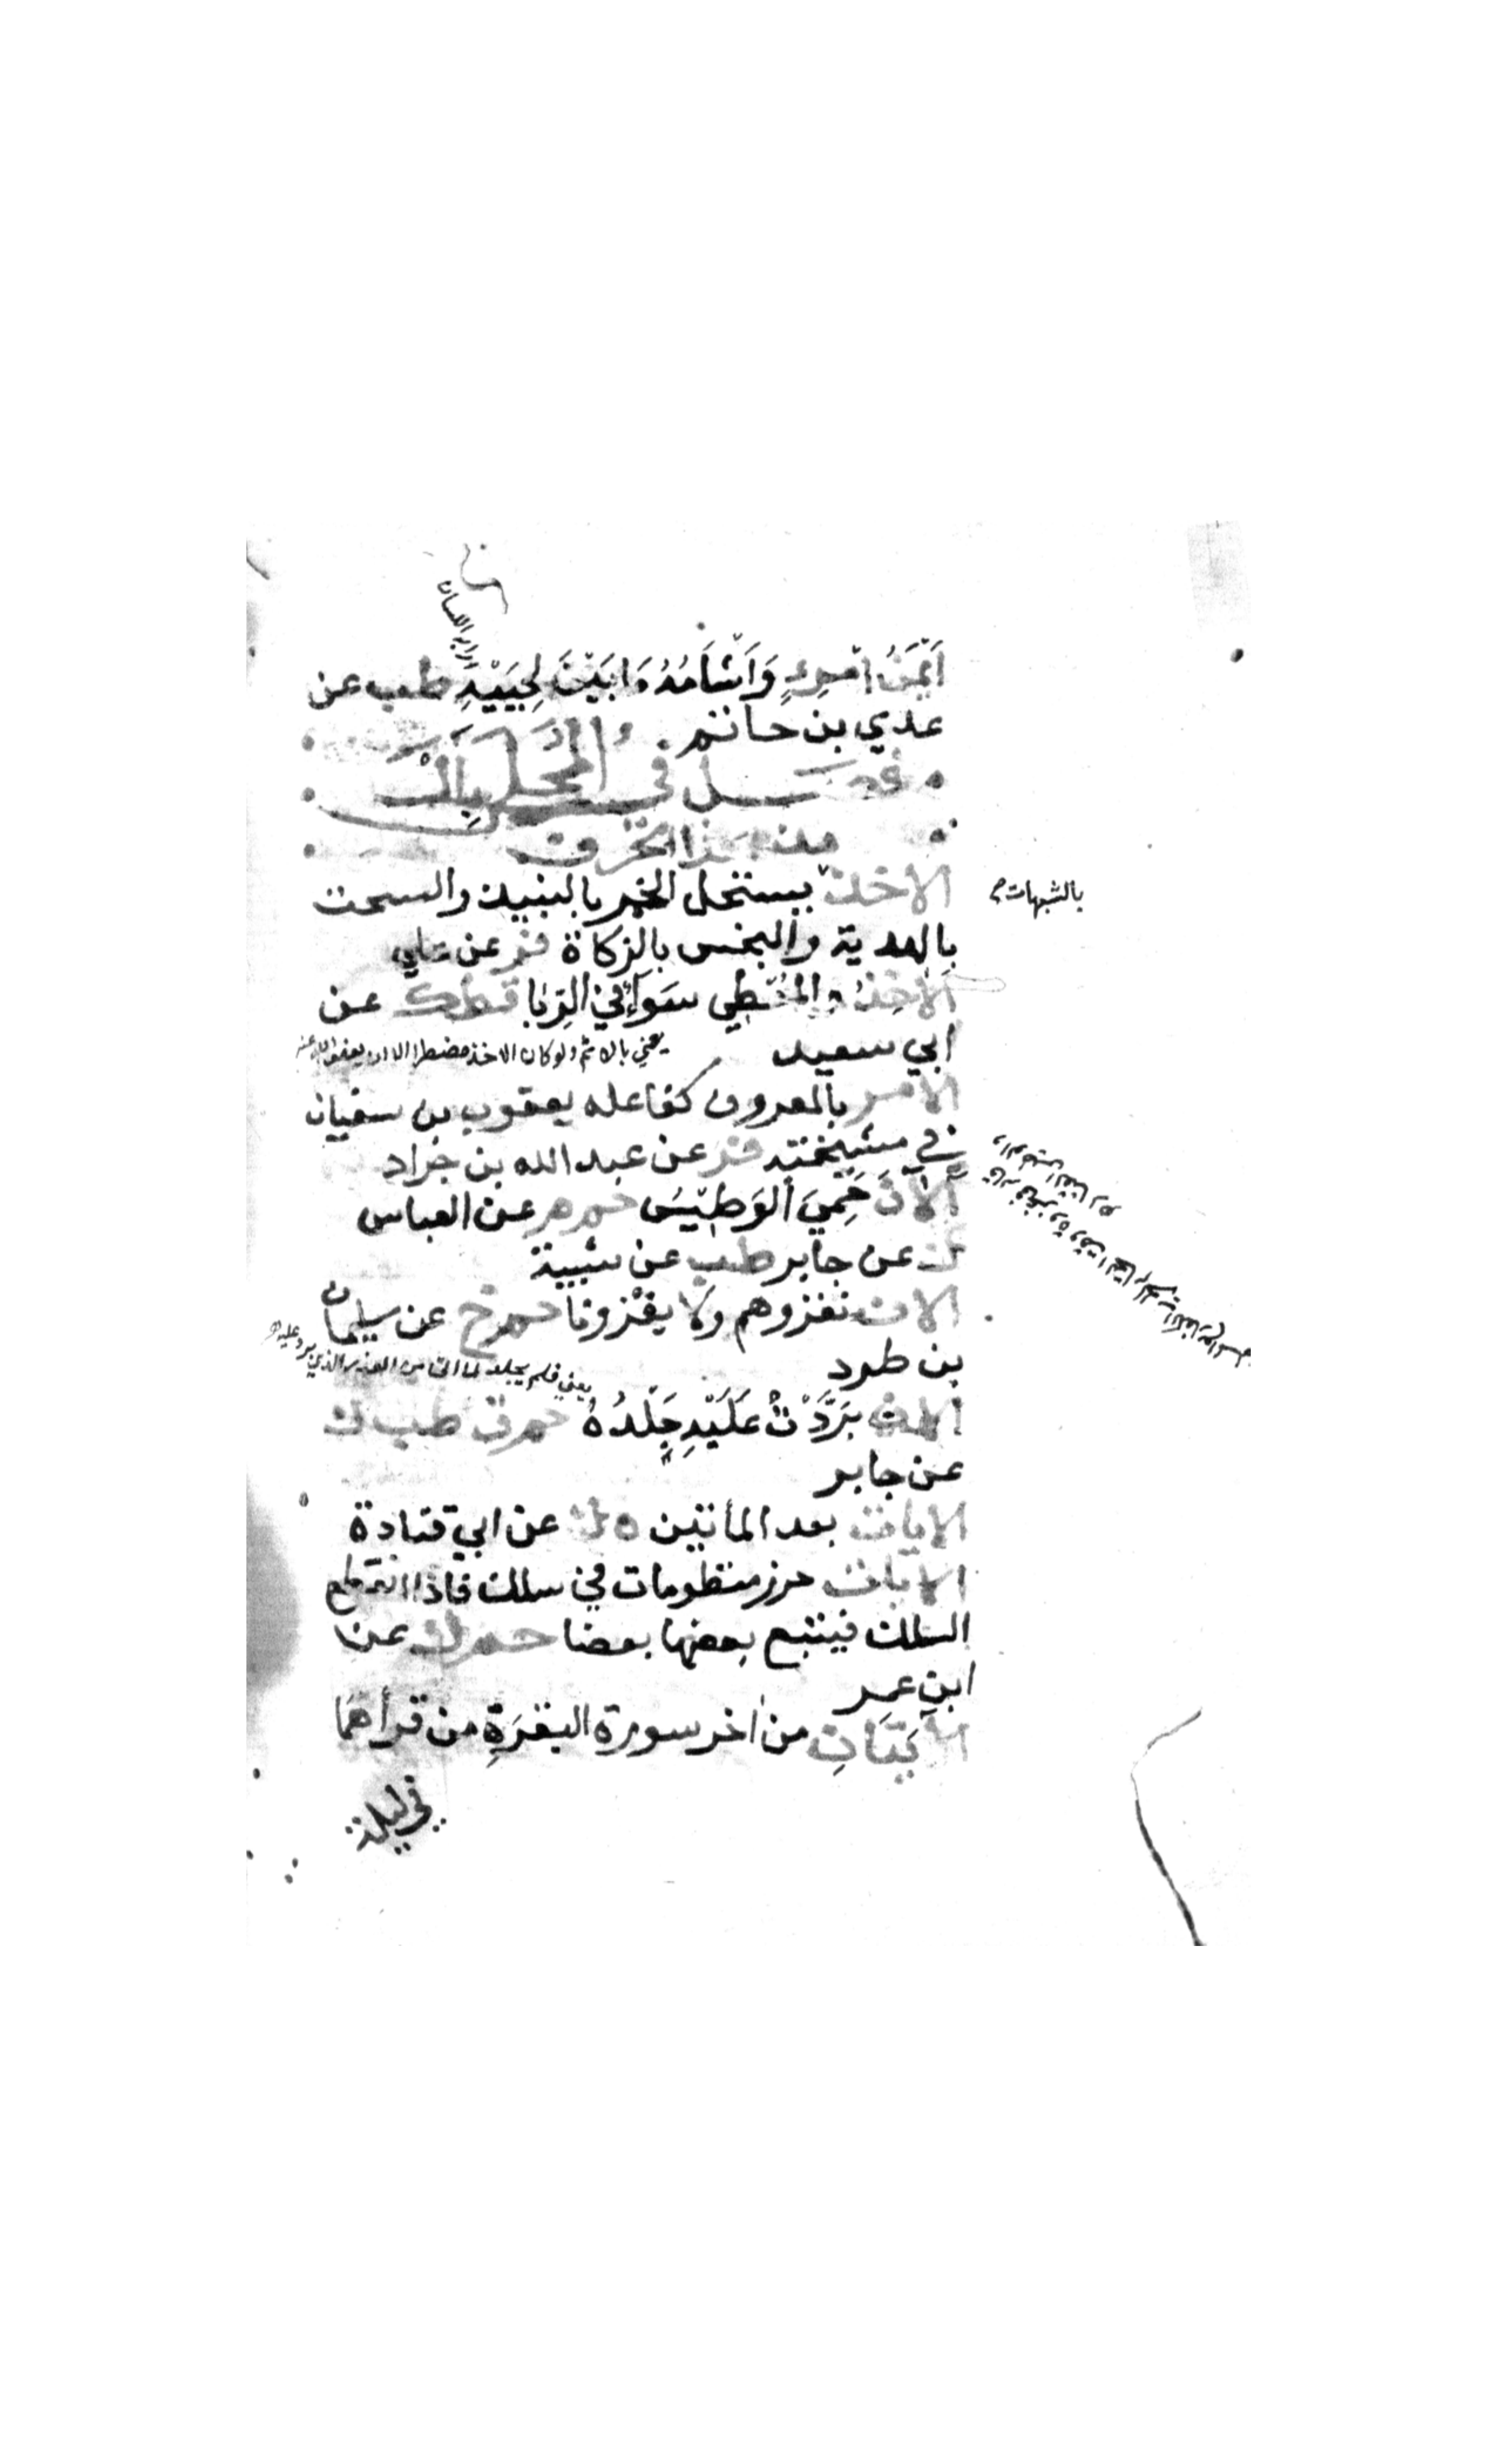 أَيْمَنُ امْرِئٍ وَأَشْأَمُهُ مَا بَيْنَ لِحْيَيْهِ طب عن
عدي بن حاتم
فصل في المحلى بأل
من هذا الحرف
الاخذ يستحل الخمر بالنبيذ والسحت
بالشبهات
بالهدية والبخس بالزكاة فر عن علي
الآخِذُ والمُعْطِي سَوَاءٌ في الرِّبَا قط ك عن
أبي سعيد
يعني بالاثم ولو كان الاخذ مضطرا الا ان يعفو الله عنه
الامر بالمعروف كفاعله يعقوب بن سفيان
في مشيخته فر عن عبد الله بن جراد
الآنَ حَمِيَ الوَطِيسُ حم م عن العباس
ك عن جابر طب عن شيبة
الان نغزوهم ولا يغزونا حم خ عن سليمان
بن صرد
الان بَرَّدْتَ عَلَيْهِ جِلْدُهُ حم قط ك
عن جابر
الايات بعد المأتين ه ك عن ابي قتادة
الايات خرز منظومات في سلك فاذا انقطع
السلك فيتبع بعضها بعضا حم ك عن
ابن عمر
الآيَتَانِ من اخر سورة البقَرَةِ من قرأهما
في ليلة